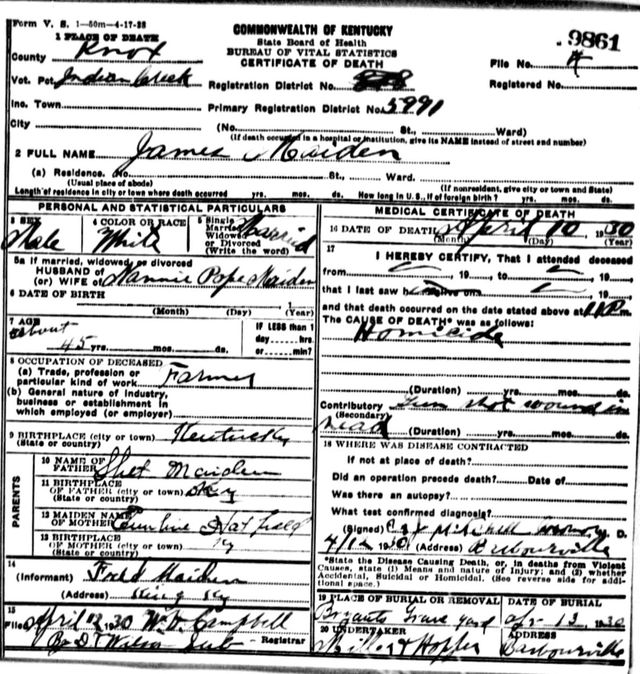 Form V. S. 1-50m-4-17-28
1 PLACE OF DEATH
COMMONWEALTH OF KENTUCKY
State Board of Health
BUREAU OF VITAL STATISTICS
CERTIFICATE OF DEATH
9861
File No.
County Knox
Vot. Pct. Indian Creek
Registration District No.
Registered No. 4
Inc. Town
Primary Registration District No. 5991
City (No. St., Ward)
(If death occurred in a hospital or institution, give its NAME instead of street and number)
2 FULL NAME James Maiden
(a) Residence. No. St., Ward.
(Usual place of abode) (If nonresident, give city or town and State)
Length of residence in city or town where death occurred yrs. mos. ds. How long in U. S., if of foreign birth? yrs. mos. ds.
PERSONAL AND STATISTICAL PARTICULARS
3 SEX
Male
4 COLOR OR RACE
White
5 Single
Married
Widowed
or Divorced
(Write the word)
Married
5a If married, widowed, or divorced
HUSBAND of
(or) WIFE of Nannie Pope Maiden
6 DATE OF BIRTH
(Month) (Day) (Year)
7 AGE
about
45 yrs. mos. ds.
IF LESS than 1
day hrs.
or min?
8 OCCUPATION OF DECEASED
(a) Trade, profession or
particular kind of work Farmer
(b) General nature of industry,
business or establishment in
which employed (or employer)
9 BIRTHPLACE (city or town) Kentucky
(State or country)
PARENTS
10 NAME OF
FATHER Maiden
11 BIRTHPLACE
OF FATHER (city or town) Ky
(State or country)
12 MAIDEN NAME
OF MOTHER Hatfield
13 BIRTHPLACE
OF MOTHER (city or town) Ky
(State or country)
14
(Informant) Maiden
(Address) Ky
15
Filed April 12 1930 W. D. Campbell
Registrar
By D. T. Wilson Sub
MEDICAL CERTIFICATE OF DEATH
16 DATE OF DEATH April 10 1930
(Month) (Day)
17
I HEREBY CERTIFY, That I attended deceased
from , 19 , to , 19
that I last saw h alive on , 19
and that death occurred on the date stated above at 11 P m.
The CAUSE OF DEATH* was as follows:
Homicide
(Duration) yrs. mos. ds.
Contributory Gun shot wound in
(Secondary)
head
(Duration) yrs. mos. ds.
18 WHERE WAS DISEASE CONTRACTED
If not at place of death?
Did an operation precede death? Date of
Was there an autopsy?
What test confirmed diagnosis?
(Signed) Mitchell M. D.
4/12 1930 (Address) Barbourville
*State the Disease Causing Death, or, in deaths from Violent
Causes, state (1) Means and nature of Injury; and (2) whether
Accidental, Suicidal or Homicidal. (See reverse side for addi-
tional space.)
19 PLACE OF BURIAL OR REMOVAL
Bryants Grave yard
DATE OF BURIAL
Apr 12, 1930
20 UNDERTAKER
Miller & Hopper
ADDRESS
Barbourville